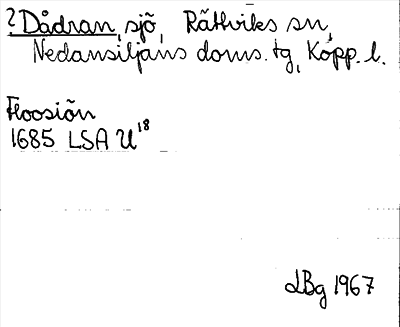 ? Dådran, sjö, Rättviks sn,
Nedansiljans doms. tg, Kopp. l.
Floosiön
1685 LSA U18
LBg 1967